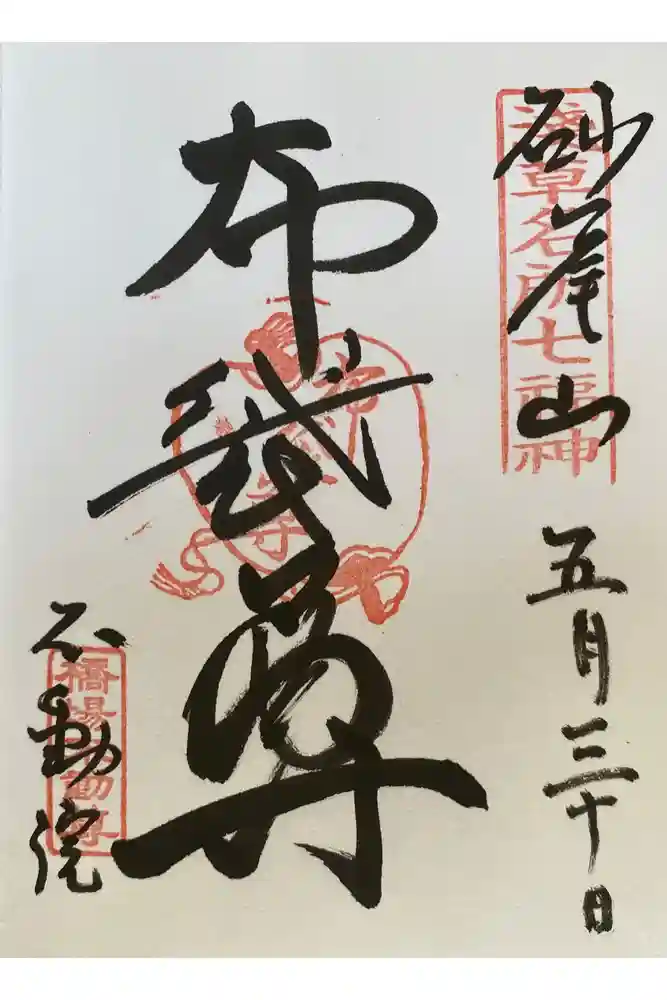 砂尾山
浅草名所七福神
五月三十日
布袋尊
布袋尊
不動院
橋場不動尊